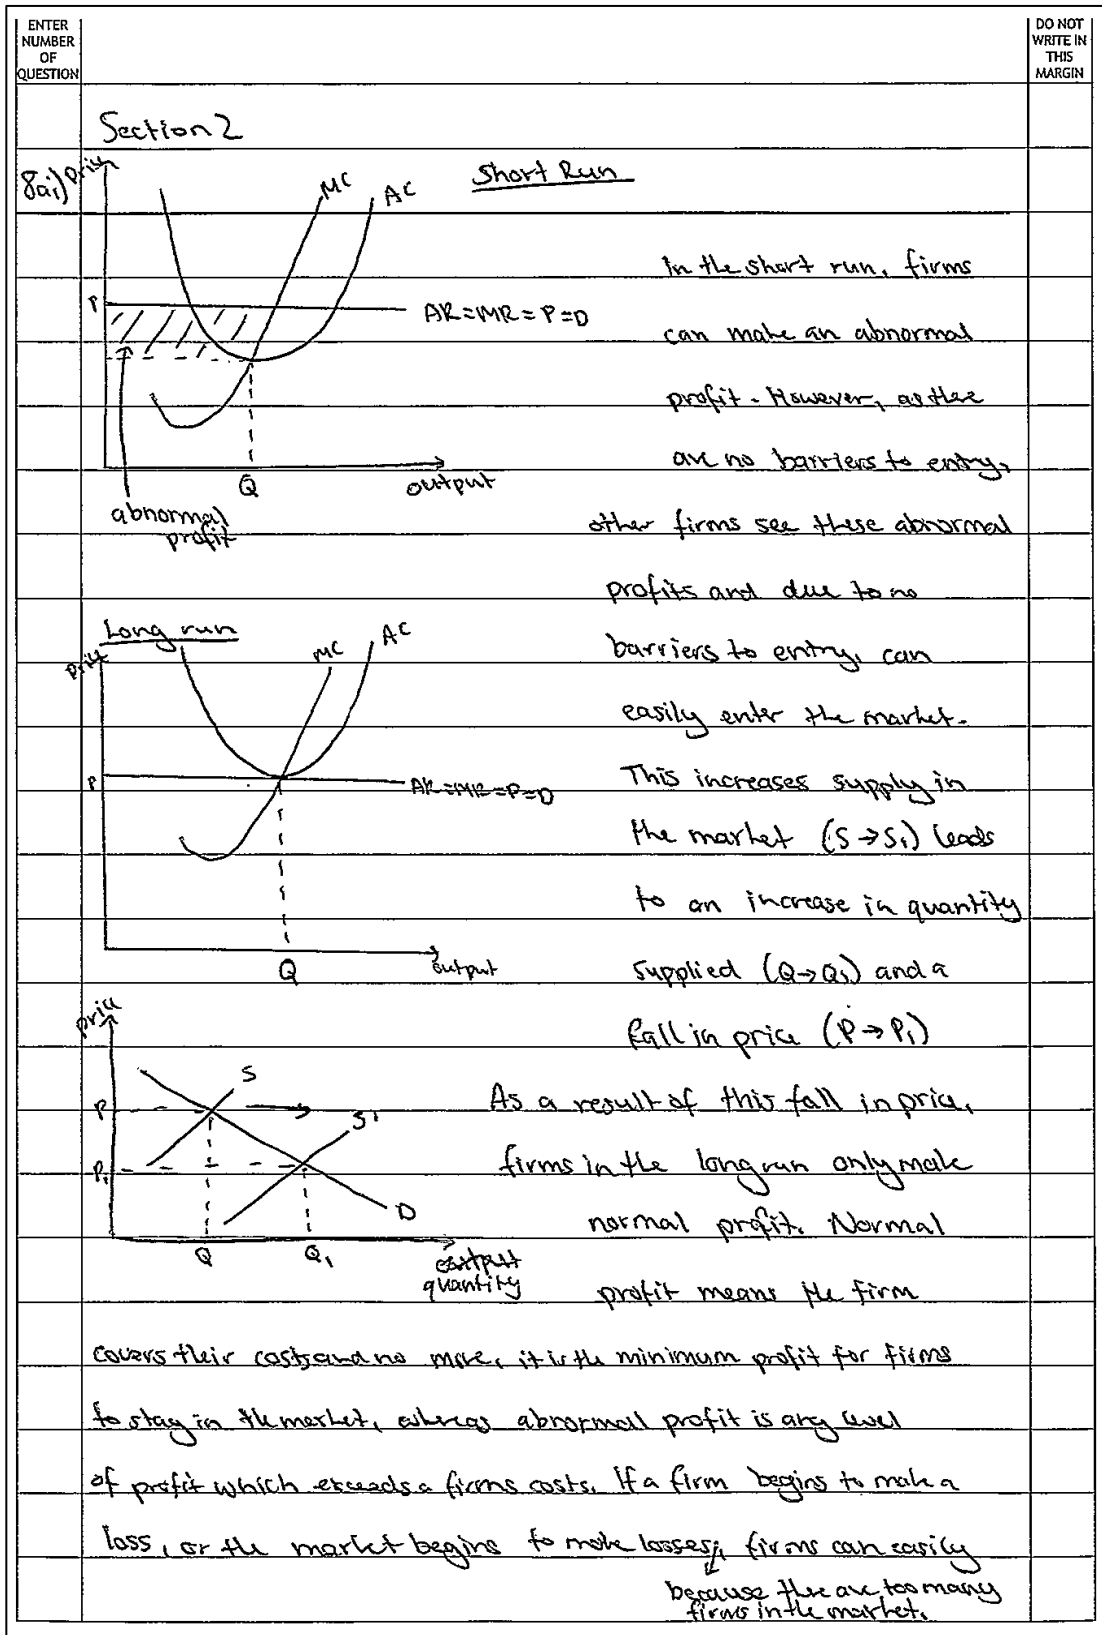 ENTER
NUMBER
OF
QUESTION
DO NOT
WRITE IN
THIS
MARGIN
Section 2
8ai)
price
Short Run
MC
AC
P
AR=MR=P=D
Q
output
abnormal
profit
In the short run, firms
can make an abnormal
profit. However, as there
are no barriers to entry,
other firms see these abnormal
profits and due to no
barriers to entry, can
easily enter the market.
Long run
price
MC
AC
P
AR=MR=P=D
Q
output
This increases supply in
the market (S→S₁) leads
to an increase in quantity
supplied (Q→Q₁) and a
fall in price (P→P₁)
price
S
S¹
P
P₁
D
Q
Q₁
output
quantity
As a result of this fall in price,
firms in the long run only make
normal profit. Normal
profit means the firm
covers their costs and no more, it is the minimum profit for firms
to stay in the market, whereas abnormal profit is any level
of profit which exceeds a firms costs. If a firm begins to make a
loss, or the market begins to make losses, firms can easily
because there are too many
firms in the market.